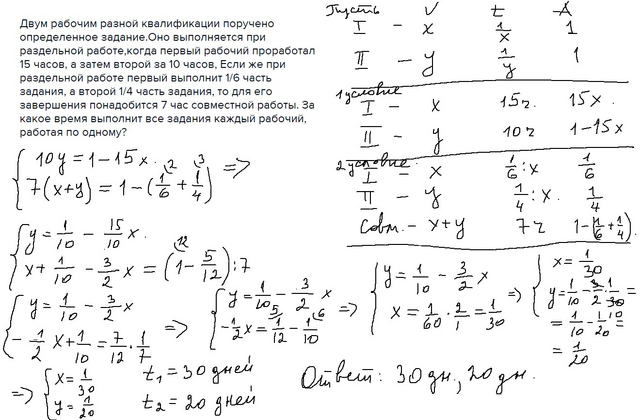 Двум рабочим разной квалификации поручено
определенное задание.Оно выполняется при
раздельной работе,когда первый рабочий проработал
15 часов, а затем второй за 10 часов, Если же при
раздельной работе первый выполнит 1/6 часть
задания, а второй 1/4 часть задания, то для его
завершения понадобится 7 час совместной работы. За
какое время выполнит все задания каждый рабочий,
работая по одному?
Пусть V t A
I – x 1/x 1
II – y 1/y 1
1 условие
I – x 15ч. 15x
II – y 10ч 1-15x
2 условие
I – x 1/6 : x 1/6
II – y 1/4 : x. 1/4
Совм. – x+y 7ч 1-(1/6+1/4).
10y = 1-15x.
7(x+y) = 1-(1/6+1/4) =>
y = 1/10 - 15/10 x.
x + 1/10 - 3/2 x = (1 - 5/12) : 7
y = 1/10 - 3/2 x
-1/2 x + 1/10 = 7/12 · 1/7 =>
y = 1/10 - 3/2 x
-1/2 x = 1/12 - 1/10 =>
y = 1/10 - 3/2 x
x = 1/60 · 2/1 = 1/30 =>
x = 1/30
y = 1/10 - 3/2 · 1/30 =
= 1/10 - 1/20 =
= 1/20
=> x = 1/30 t₁ = 30 дней
y = 1/20 t₂ = 20 дней
Ответ: 30 дн., 20 дн.